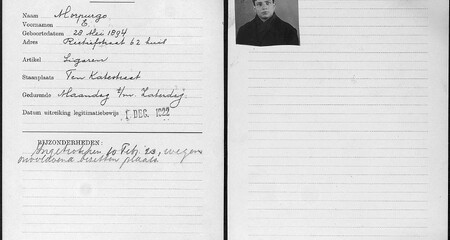 Naam Morpurgo
Voornamen E.
Geboortedatum 28 Mei 1894
Adres Retiefstraat 62 huis
Artikel Sigaren
Staanplaats Ten Katestraat
Gedurende Maandag t/m Zaterdag
Datum uitreiking legitimatiebewijs 1 DEC. 1922
BIJZONDERHEDEN:
Ingetrokken 10 Feb. 23, wegens
onvoldoend bezetten plaats